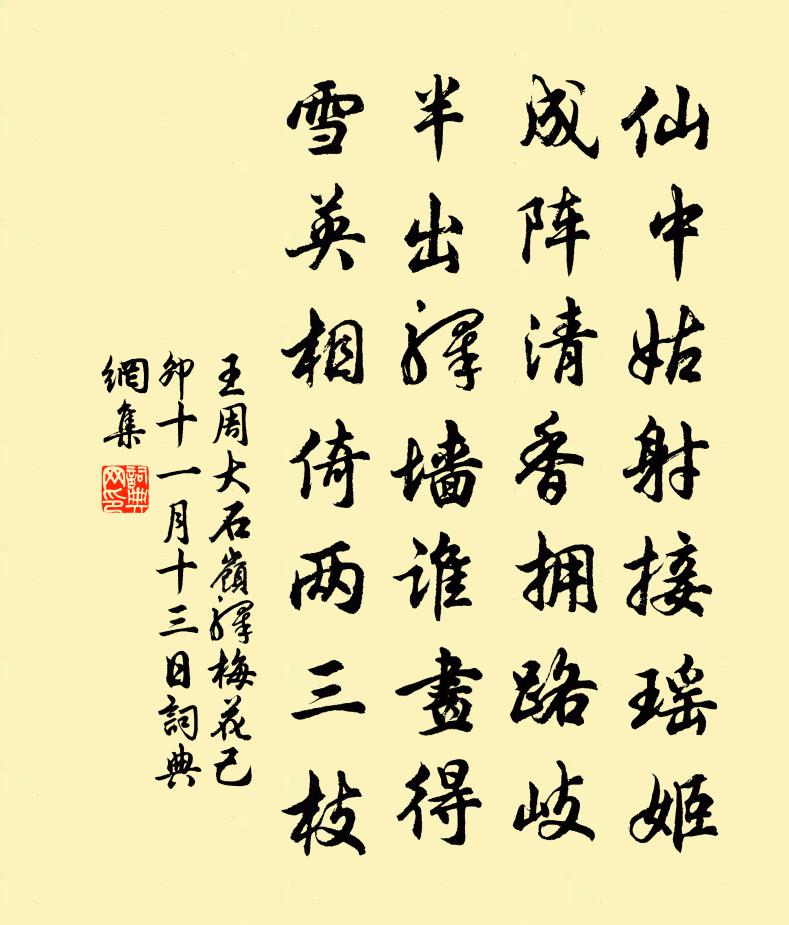 仙中姑射接瑶姬
成阵清香拥路岐
半出驛墙谁畫得
雪英相倚两三枝
王周大石嶺驛梅花己
卯十一月十三日詞典
網集
詞典网印